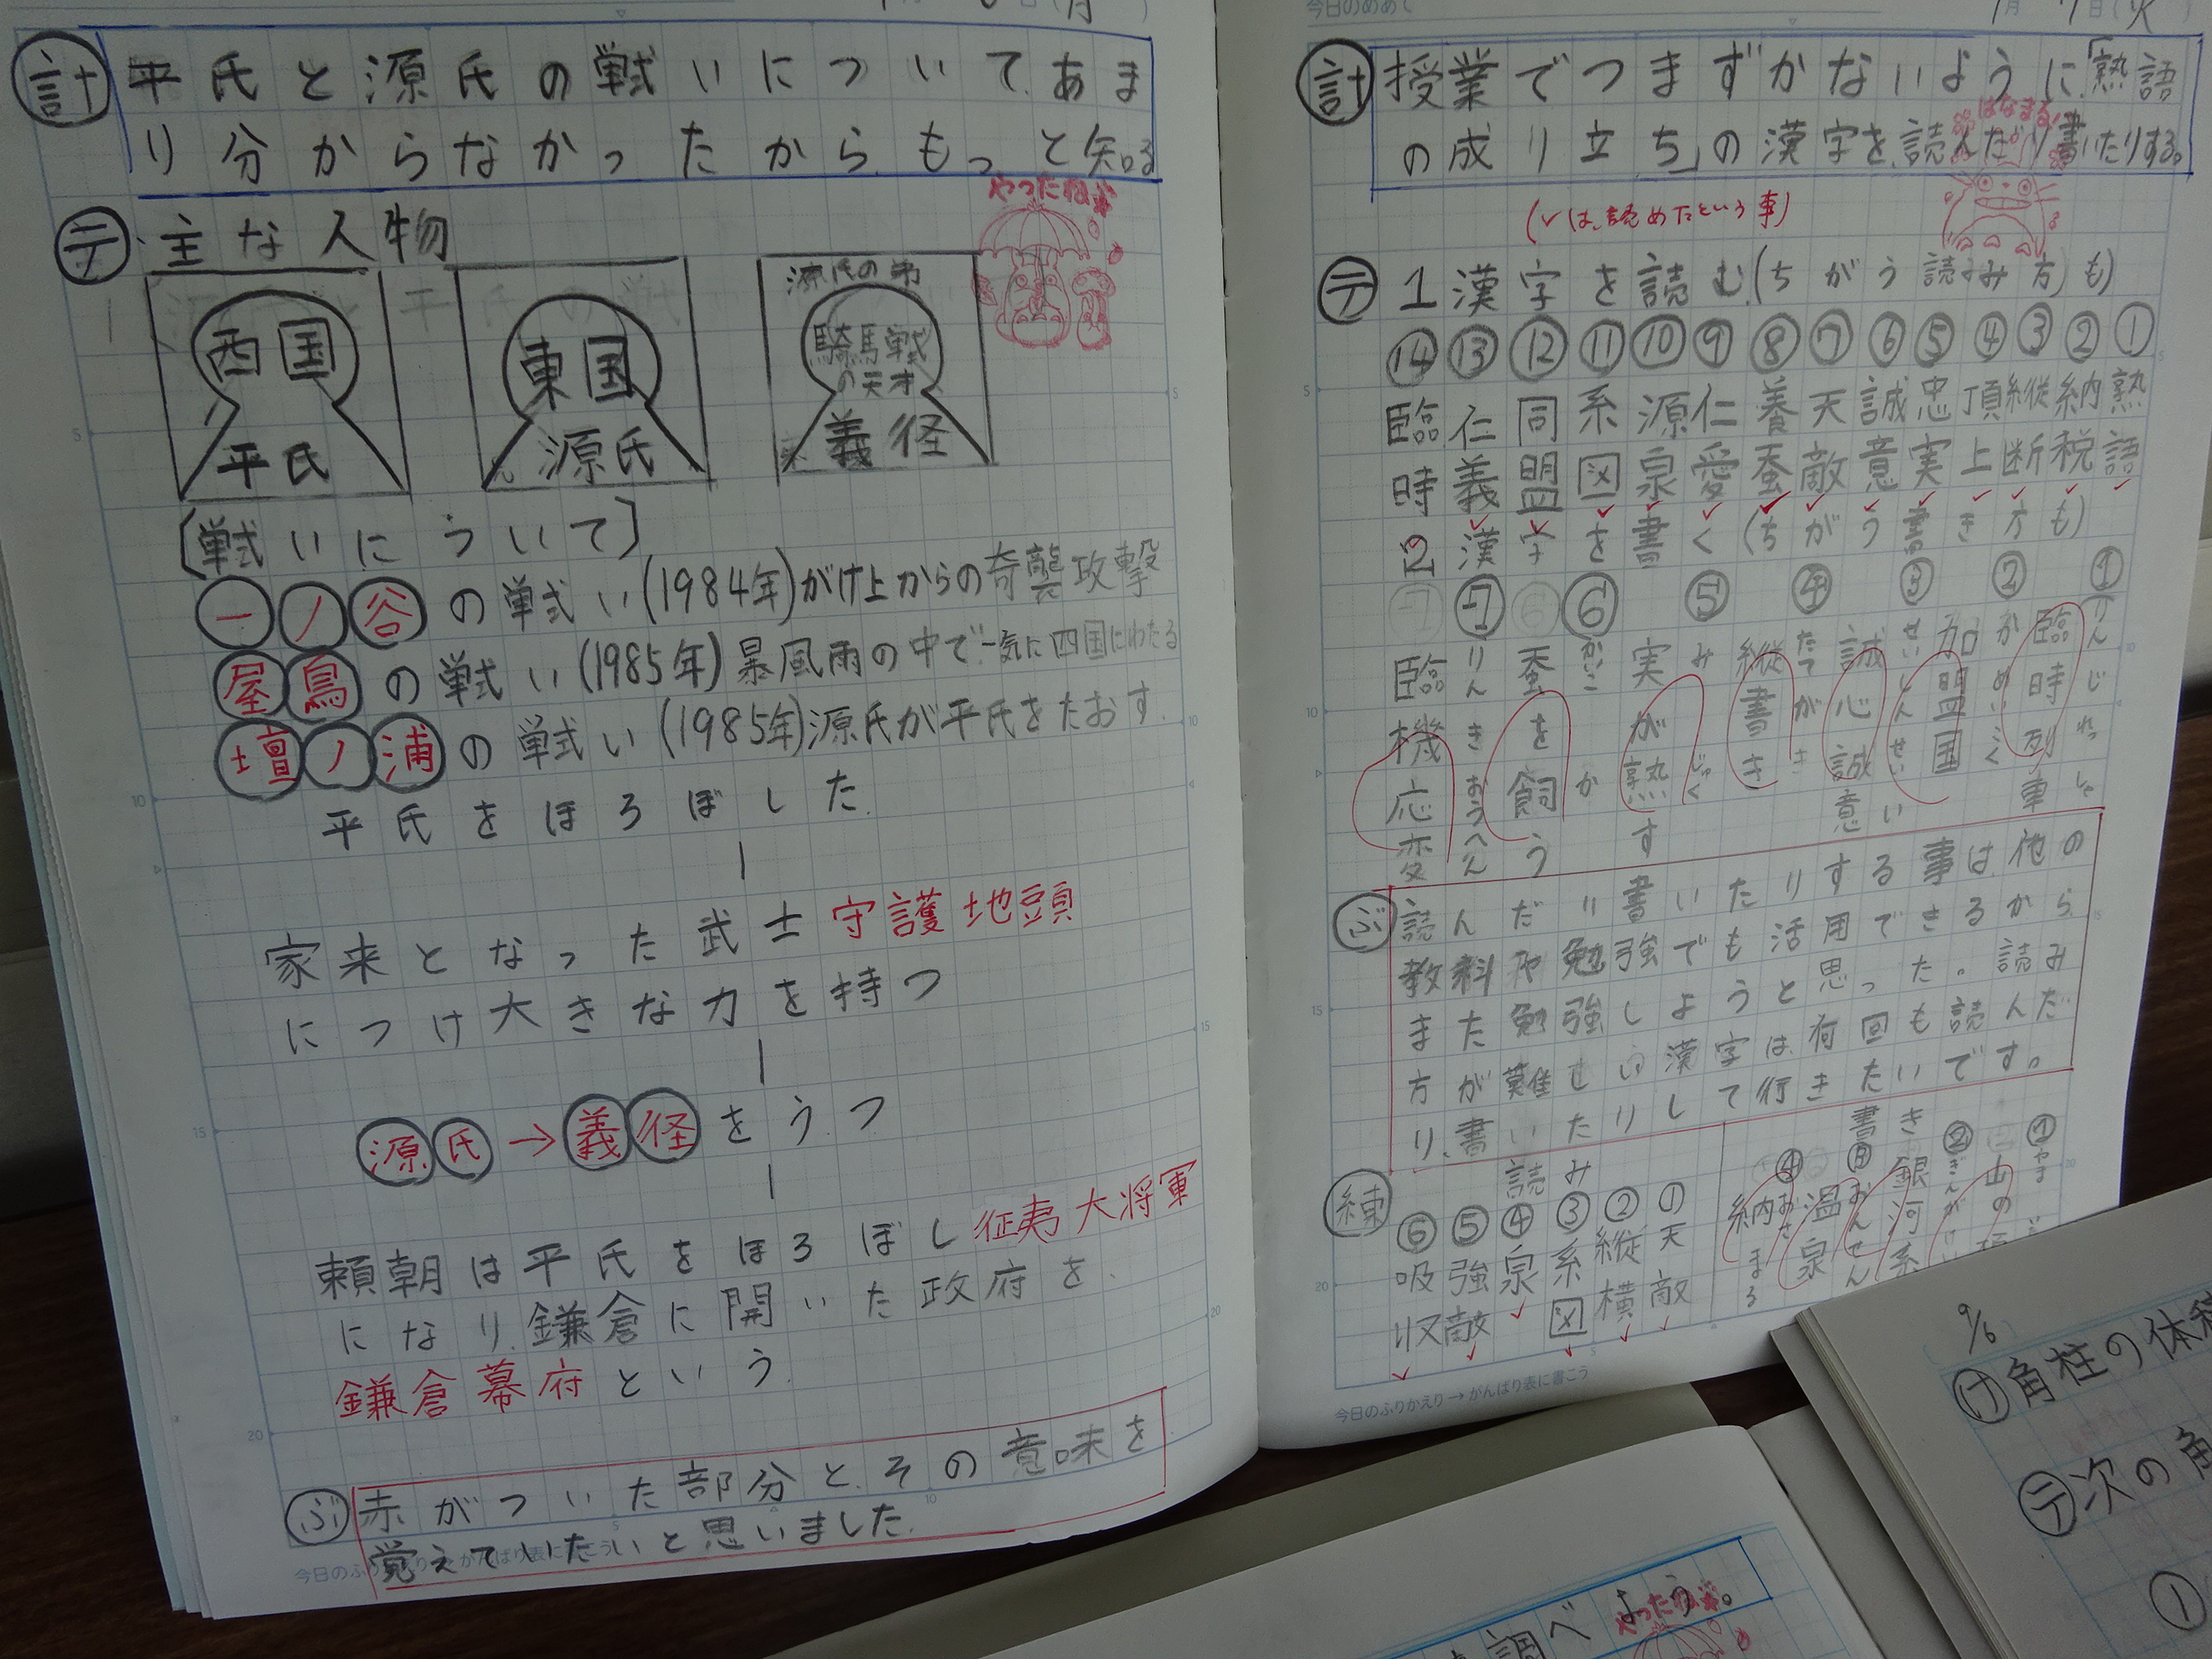 月
計 平氏と源氏の戦いについて、あま
り分からなかったから、もっと知る
やったね
テ・主な人物
西国
平氏
東国
源氏
源氏の弟
騎馬戦
の天才
義経
〔戦いについて〕
一ノ谷の戦い(1984年)がけ上からの奇襲攻撃
屋島の戦い(1985年)暴風雨の中で一気に四国にわたる
壇ノ浦の戦い(1985年)源氏が平氏をたおす
平氏をほろぼした
家来となった武士 守護 地頭
につけ大きな力を持つ
源氏→義経をうつ
頼朝は平氏をほろぼし征夷大将軍
になり、鎌倉に開いた政府を
鎌倉幕府という
ぶ 赤がついた部分と、その意味を
覚えていたいと思いました。
今日のめあて
1月 7日(火)
計 授業でつまずかないように、「熟語
の成り立ち」の漢字を、読んだり書いたりする。
はなまる!
(✓は、読めたという事)
テ 1漢字を読む(ちがう読み方も)
①熟語
②納税
③縦断
④頂上
⑤忠実
⑥誠意
⑦天敵
⑧養蚕
⑨仁愛
⑩源泉
⑪系図
⑫同盟
⑬仁義
⑭臨時
2漢字を書く(ちがう書き方も)
①りんじれっしゃ 臨時列車
②かめいこく 加盟国
③せいしんせいい 誠心誠意
④たてがき 縦書き
⑤みがじゅくす 実が熟す
⑥かいこをかう 蚕を飼う
⑦りんきおうへん 臨機応変
ぶ 読んだり書いたりする事は、他の
教科や勉強でも活用できるから
また勉強しようと思った。読み
方が難しい漢字は、何回も読んだ
り、書いたりして行きたいです。
練 読み
①天敵
②縦横
③系図
④泉
⑤強敵
⑥吸収
書き
①やま 山の
②ぎんがけい 銀河系
③おんせん 温泉
④おさまる 納まる
今日のふりかえり→がんばり表に書こう
9/6
け 角柱の体積
テ 次の角
①
調べよう。
やったね